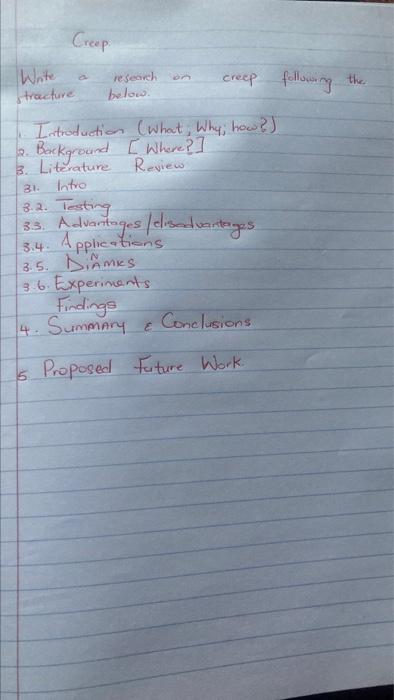 Creep.
Write a research on creep following the
structure below.
1. Introduction (What, Why, how?)
2. Background [Where?]
3. Literature Review
3.1. Intro
3.2. Testing
3.3. Advantages/disadvantages
3.4. Applications
3.5.
3.6. Experiments
Findings
4. Summary & Conclusions
5 Proposed Future Work.